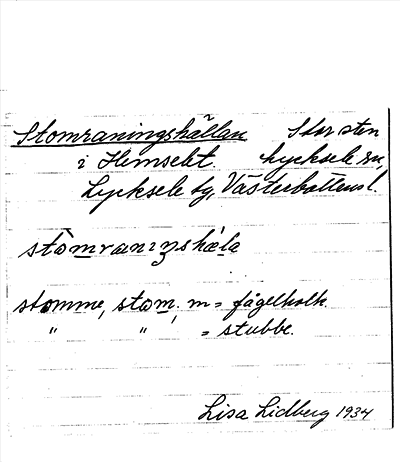 Stomraningshällan Stor sten
i Hemsekt. Lycksele sn,
Lycksele sg, Västerbottens l.
stòmranıŋshæ̀la
stomme, stom, m = fågelholk.
" " = stubbe.
Lisa Lidberg 1934